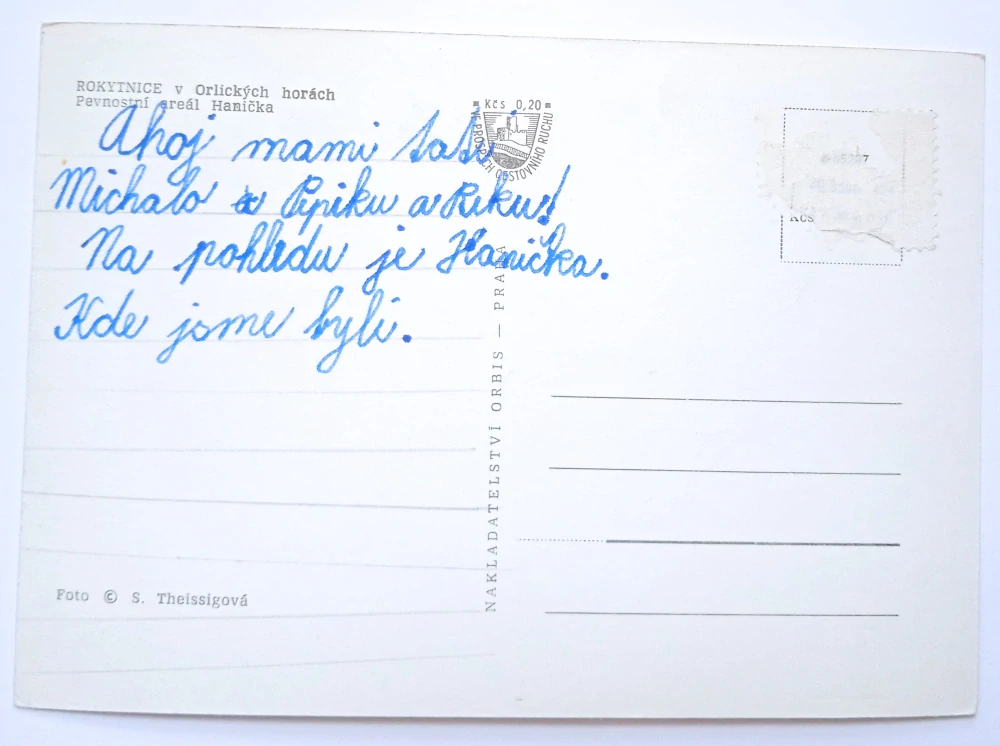 ROKYTNICE v Orlických horách
Pevnostní areál Hanička
Kčs 0,20
VE PROSPĚCH CESTOVNÍHO RUCHU
Ahoj mami tati
Michalo a Pepiku a Riku!
Na pohledu je Hanička.
Kde jsme byli.
NAKLADATELSTVÍ ORBIS — PRAHA
Kčs
Foto © S. Theissigová